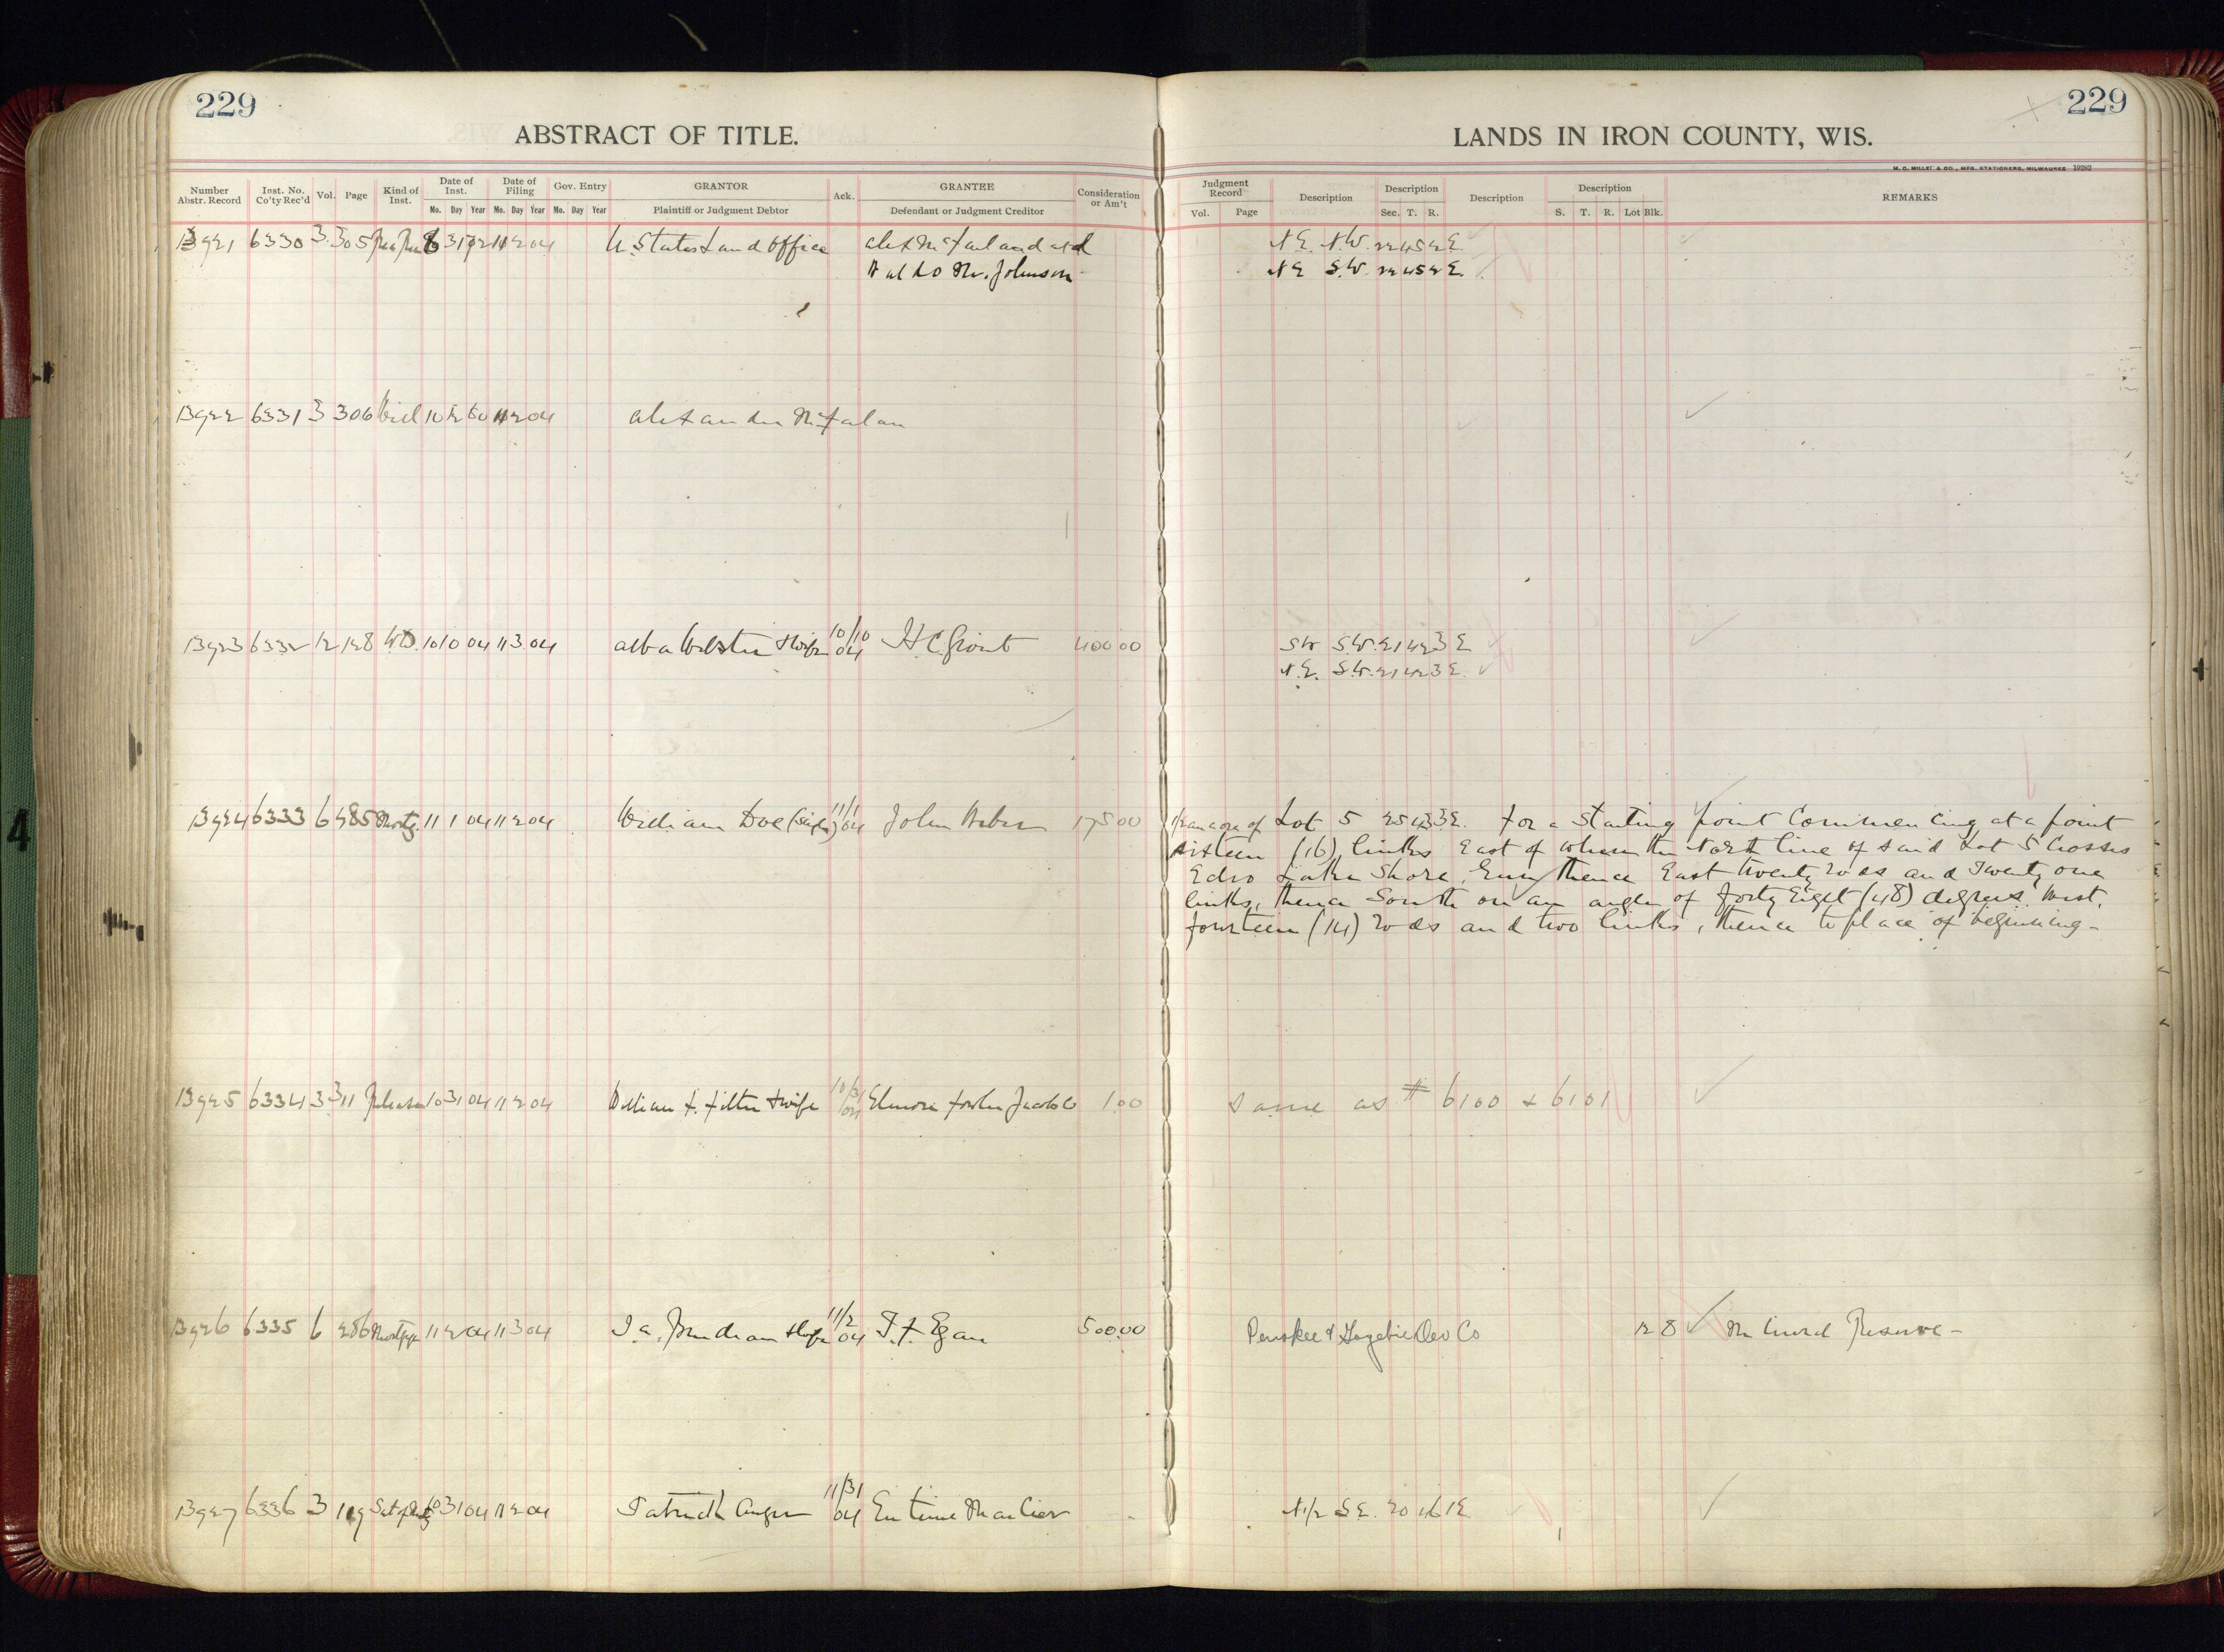 229
ABSTRACT OF TITLE.
Number Abstr. Record Inst. No. Co'ty Rec'd Vol. Page Kind of Inst. Date of Inst. Date of Filing Gov. Entry GRANTOR Ack. GRANTEE Consideration or Am't
Mo. Day Year Mo. Day Year Mo. Day Year Plaintiff or Judgment Debtor Defendant or Judgment Creditor
13921 6330 3 305 11 2 04 U. States Land Office Alex McFarland and
Waldo M. Johnson
13922 6331 3 306 10 11 2 04 Alexander McFarlan
13923 6332 12 128 W.D. 10 10 04 11 3 04 Alba Webster & Wife 10/10 04 H C Grout 400 00
13924 6333 6 485 Mortg. 11 1 04 11 2 04 William Doe (Single) 11/1 04 John 175 00
13925 6334 3 311 Release 10 31 04 11 2 04 William & wife 10/31 04 Elmore Fowler Jacobs 1 00
13926 6335 6 286 Mortgage 11 2 04 11 3 04 & Wife 11/2 04 Egan 500 00
13927 6336 3 119 Sat of Mortg 10 31 04 11 2 04 11/31 04
229
LANDS IN IRON COUNTY, WIS.
H. C. MILLER & CO., MFG. STATIONERS, MILWAUKEE 19282
Judgment Record Description Description Description Description REMARKS
Vol. Page Sec. T. R. S. T. R. Lot Blk.
N E. N.W. 22 45 2 E.
N E S.W. 22 45 2 E.
SW S.W. 21 42 3 E
N.E. S.W. 21 42 3 E.
1/2 an acre of Lot 5 25 43 3 E. For a Starting point Commencing at a point
sixteen (16) links East of where the North line of said Lot 5 Crosses
Echo Lake Shore, thence East twenty rods and Twenty one
links, thence South on an angle of forty Eight (48) degrees West,
fourteen (14) rods and two links, thence to place of beginning -
Same as # 6100 & 6101
Penokee & Gogebic Dev Co 12 8 Mineral Reserve -
N 1/2 S E. 20 46 1 E.